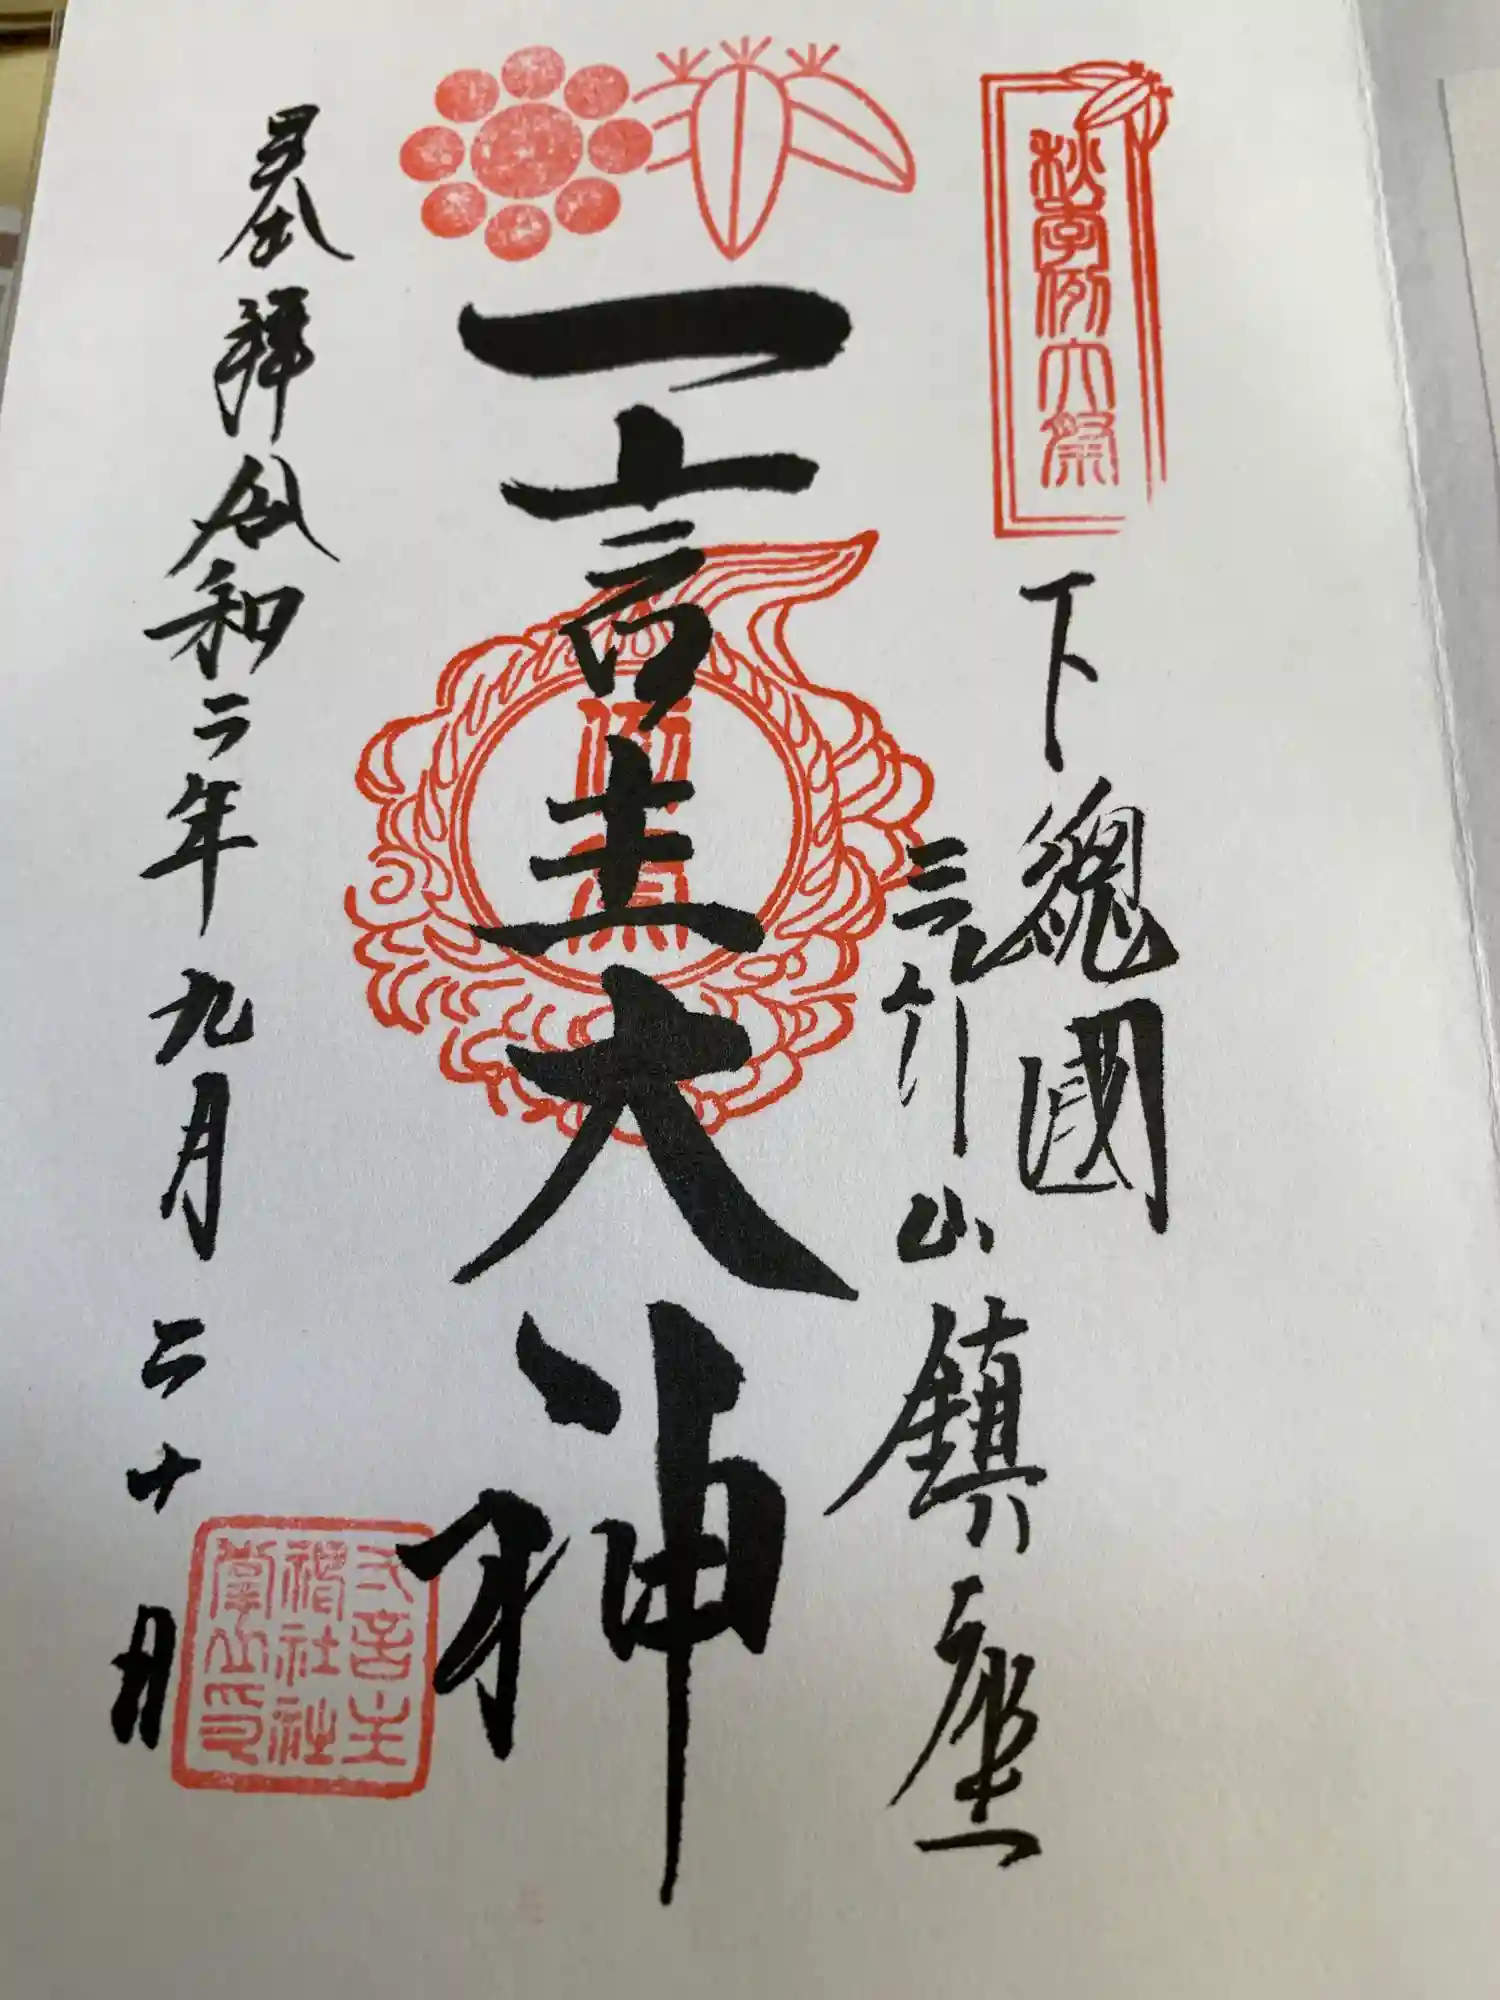 秋季例大祭
下總國
三竹山鎮座
一言主大神
奉拝 令和二年九月二十日
弌言主
神社社
掌之印